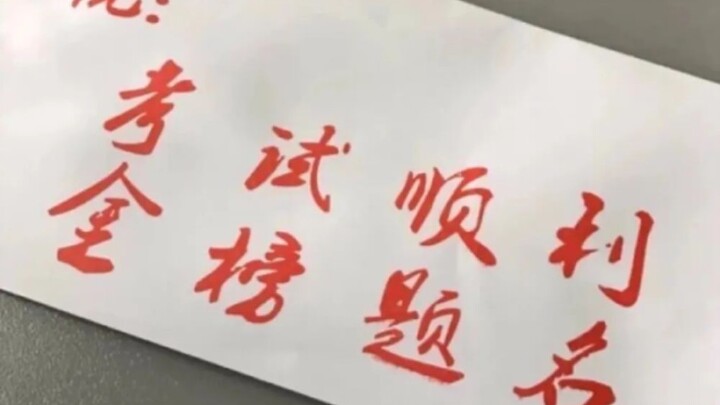 考试顺利
金榜题名